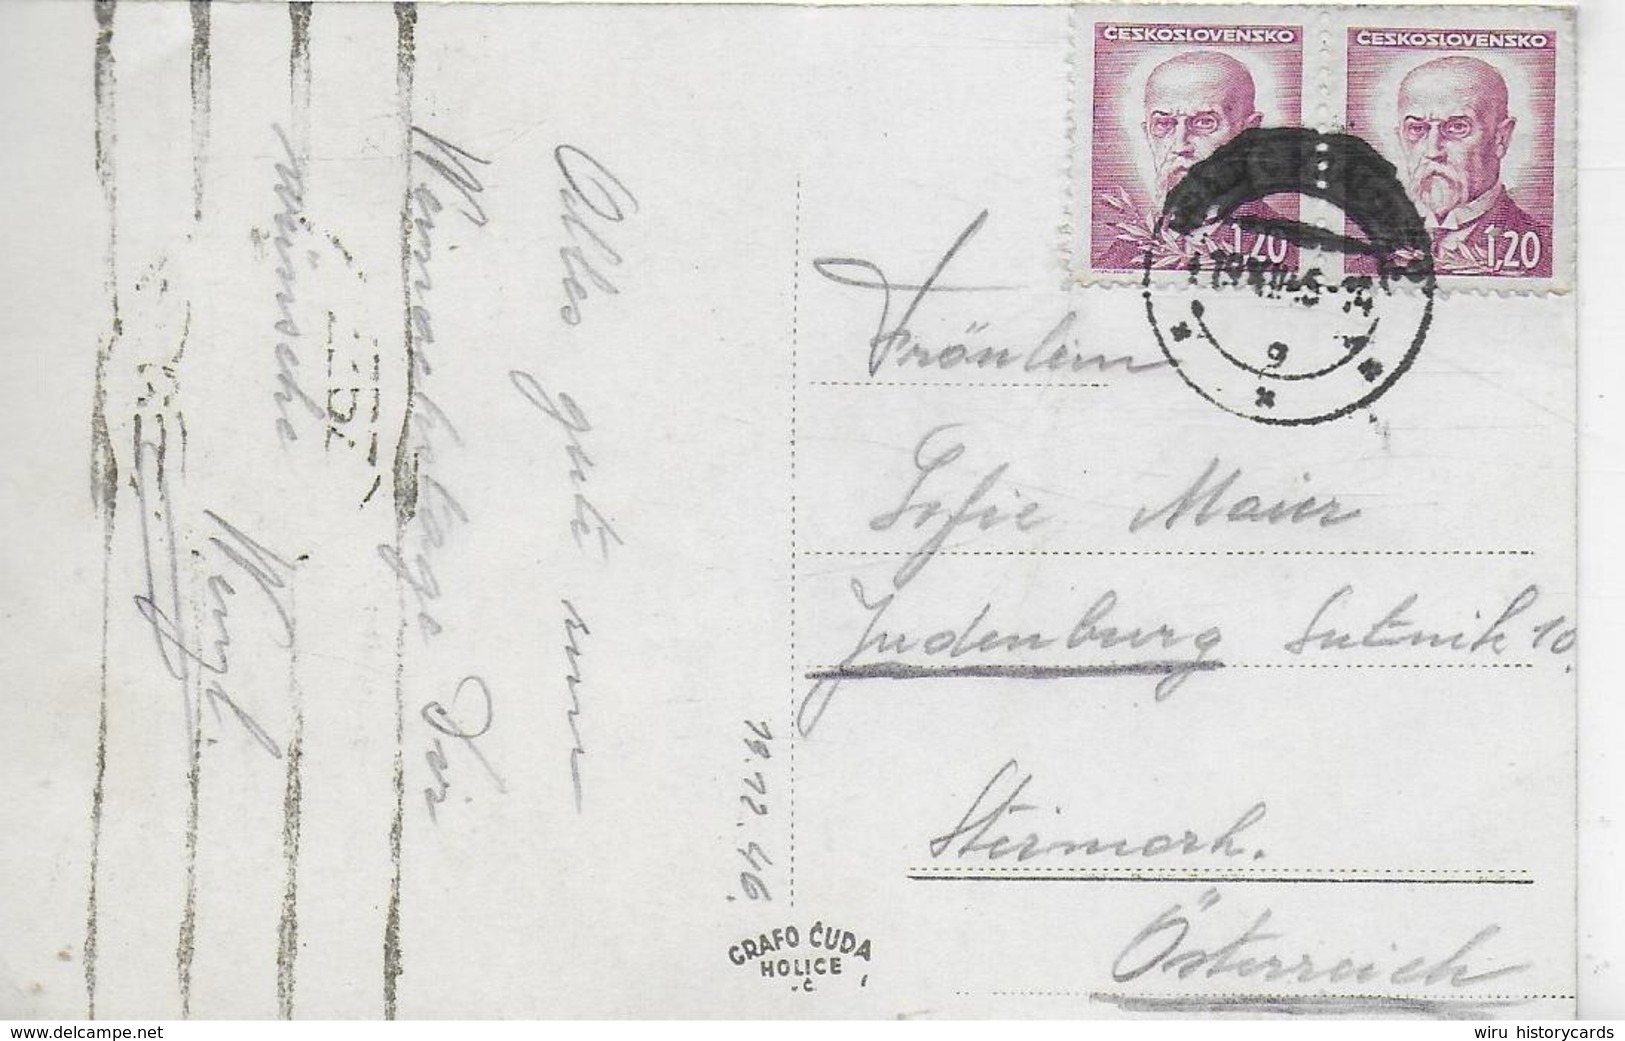 ČESKOSLOVENSKO
1,20
ČESKOSLOVENSKO
1,20
Alles gute zum
Weinachtstage Dir
wünscht
Wenzl.
19.12.46.
Fräulein
Sofie Maier
Judenburg 10
Steirmark.
Österreich
GRAFO ČUDA
HOLICE
v.Č.
delcampe.net
wiru historycards